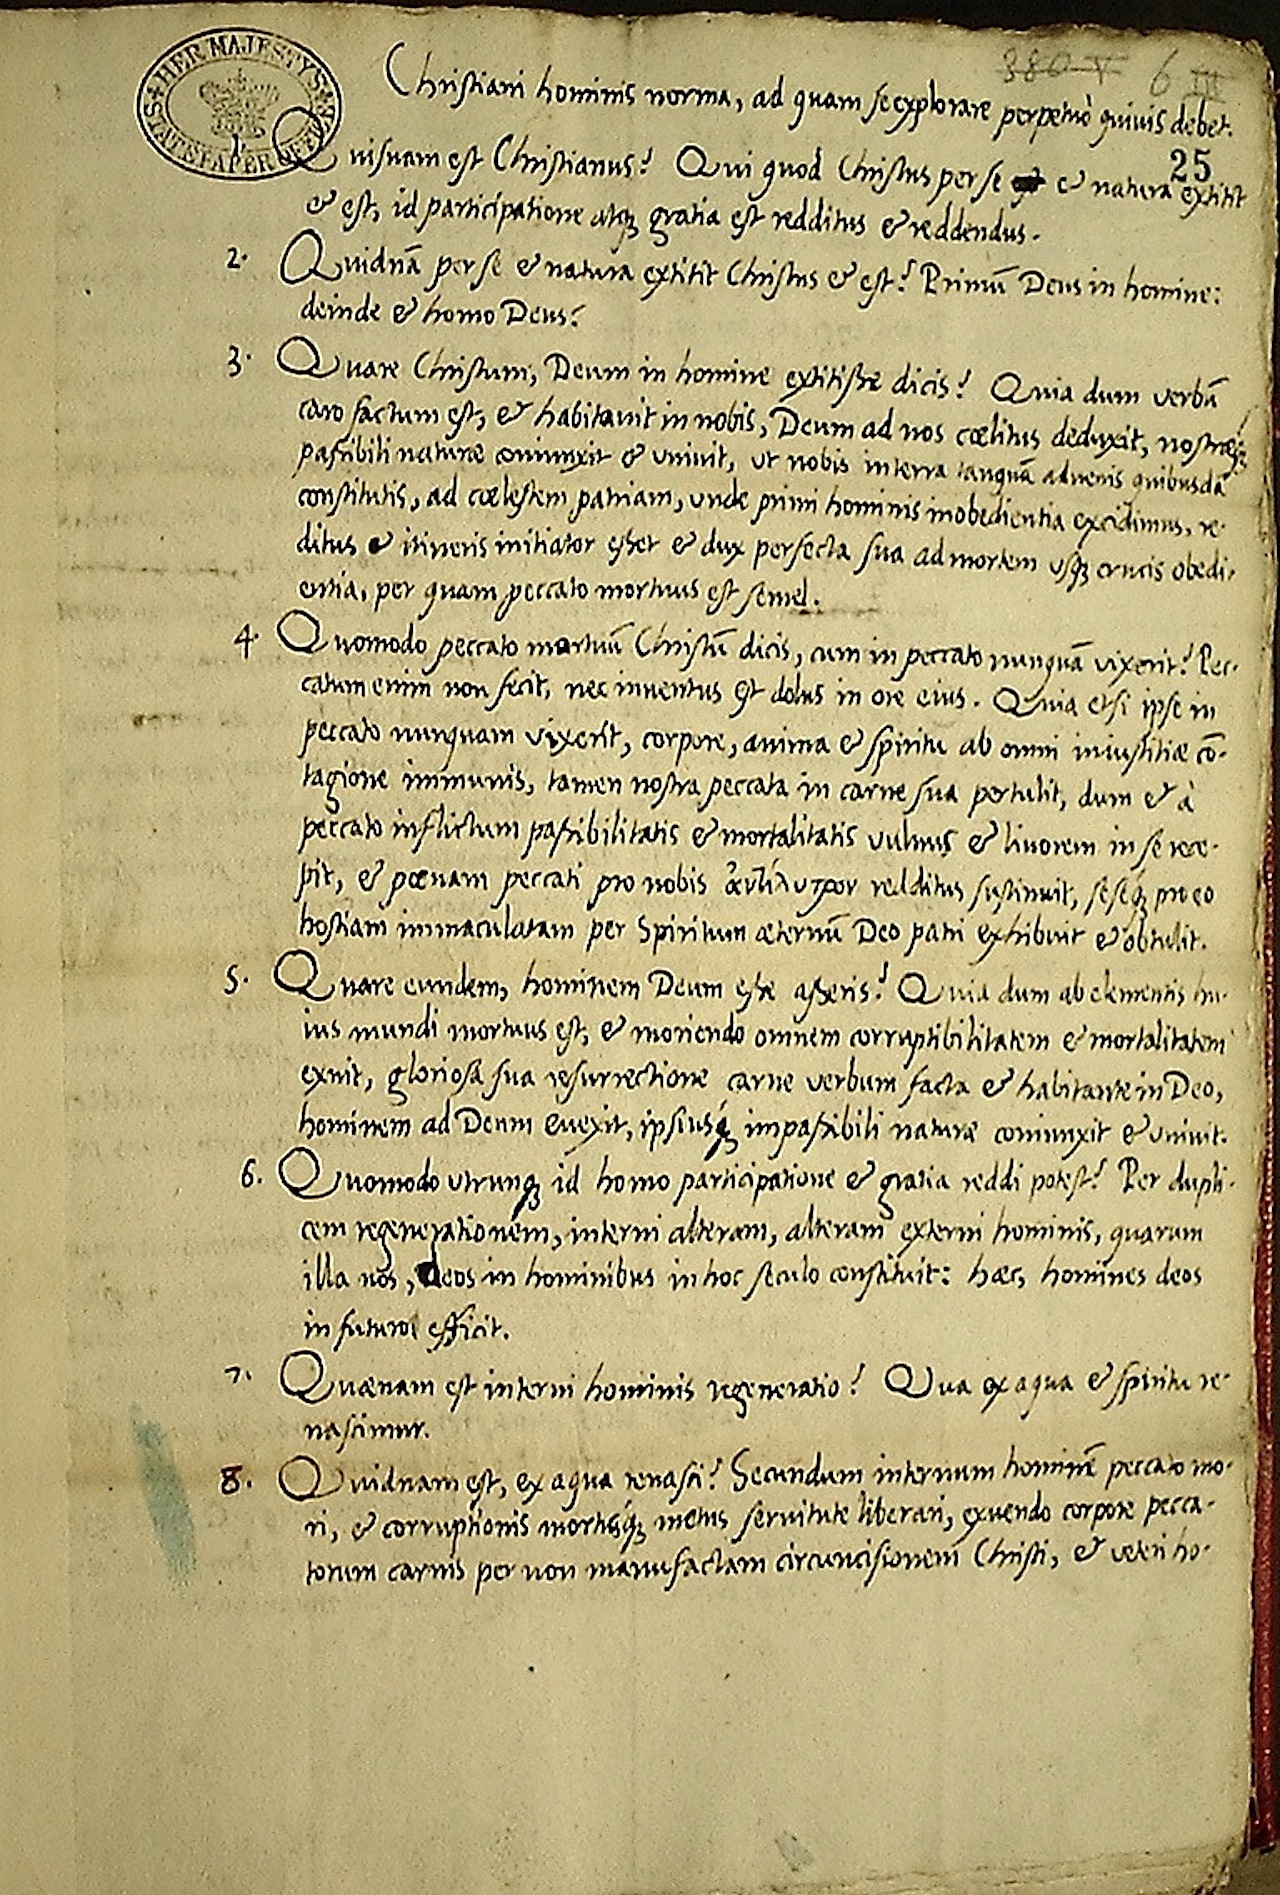 HER MAJESTY'S STATE PAPER OFFICE
380 V 6 III
Christiani hominis norma, ad quam se explorare perpetuò quiuis debet.
25
1. Quisnam est Christianus? Qui quod Christus per se & natura extitit
& est, id participatione atq; gratia est redditus & reddendus.
2. Quidnā per se & natura extitit Christus & est? Primū Deus in homine:
deinde & homo Deus.
3. Quare Christum, Deum in homine extitisse dicis? Quia dum verbū
caro factum est, & habitauit in nobis, Deum ad nos cœlitus deduxit, nostræq;
passibili naturæ coniunxit & vniuit, vt nobis in terra tanquā aduenis quibusdā
constitutis, ad cœlestem patriam, vnde primi hominis inobedientia excidimus, re-
ditus & itineris initiator esset & dux perfecta sua ad mortem vsq; crucis obedi-
entia, per quam peccato mortuus est semel.
4. Quomodo peccato mortuū Christū dicis, cum in peccato nunquā vixerit? Pec-
catum enim non fecit, nec inuentus est dolus in ore eius. Quia etsi ipse in
peccato nunquam vixerit, corpore, anima & spiritu ab omni iniustitiæ cō-
tagione immunis, tamen nostra peccata in carne sua pertulit, dum & à
peccato inflictum passibilitatis & mortalitatis vulnus & liuorem in se rece-
pit, & pœnam peccati pro nobis ἀντίλυτρον redditus sustinuit, seseq́; pro eo
hostiam immaculatam per Spiritum æternū Deo patri exhibuit & obtulit.
5. Quare eundem, hominem Deum esse asseris? Quia dum ab elementis hu-
ius mundi mortuus est, & moriendo omnem corruptibilitatem & mortalitatem
exuit, gloriosa sua resurrectione carne verbum facta & habitante in Deo,
hominem ad Deum euexit, ipsiusq́; impassibili naturæ coniunxit & vniuit.
6. Quomodo vtrunq; id homo participatione & gratia reddi potest? Per dupli-
cem regenerationem, interni alteram, alteram externi hominis, quarum
illa nos, deos in hominibus in hoc seculo constituit: hæc, homines deos
in futuro efficit.
7. Quænam est interni hominis regeneratio? Qua ex aqua & spiritu re-
nascimur.
8. Quidnam est, ex aqua renasci? Secundum internum hominē peccato mo-
ri, & corruptionis mortisq́; metus seruitute liberari, exuendo corpore pecca-
torum carnis per non manufactam circuncisionem Christi, & veteri ho-